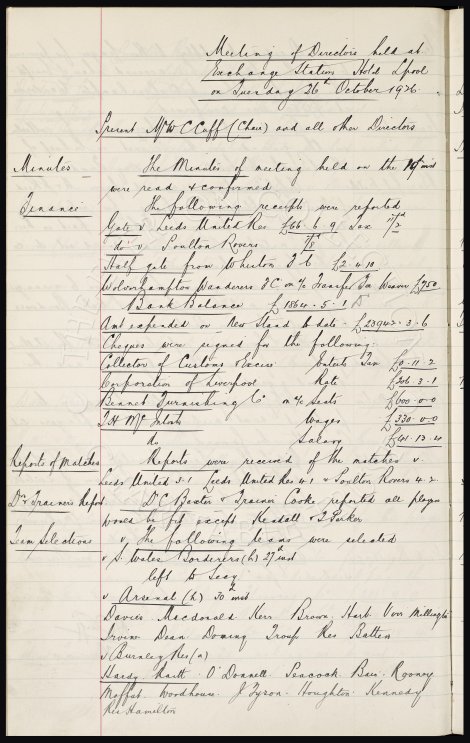 Meeting of Directors held at
Exchange Station Hotel Lpool
on Tuesday 26th October 1926.
Present Mr W C Cuff (Chair) and all other Directors
Minutes The Minutes of meeting held on the 19th inst
were read & confirmed
Finance The following receipts were reported
Gate v Leeds United Res £66. 6. 9 Tax
do v Poulton Rovers
Half gate from Whiston F C £2. 4. 10
Wolverhampton Wanderers F C on a/c Transfer Fee Weaver £750
Bank Balance £1864. 5. 1
Amt expended on New Stand to date £23942. 3. 6
Cheques were signed for the following:
Collector of Customs & Excise Enterts Tax £11. 2
Corporation of Liverpool Rate £206. 3. 1
Bennet Furnishing Co on a/c Seats £600. 0. 0
T H McIntosh Wages £330. 0. 0
Do Salary £41. 13. 4
Reports of Matches Reports were received of the matches v.
Leeds United 3-1 Leeds United Res 4-1 & Poulton Rovers 4-2
Dr & Trainers Report. Dr C Baxter & Trainer Cooke reported all players
would be fit except Kendall & J Parker
Team Selections The following teams were selected
v S. Wales Borderers (h) 27th inst
left to Secy
v Arsenal (h) 30th inst
Davies Macdonald Kerr Brown Hart Virr Millington
Irvine Dean Dominy Troup Res Batten
v Burnley Res (a)
Hardy Raitt O'Donnell Peacock Bain Rooney
Moffat Woodhouse J Tyson Houghton Kennedy
Res Hamilton